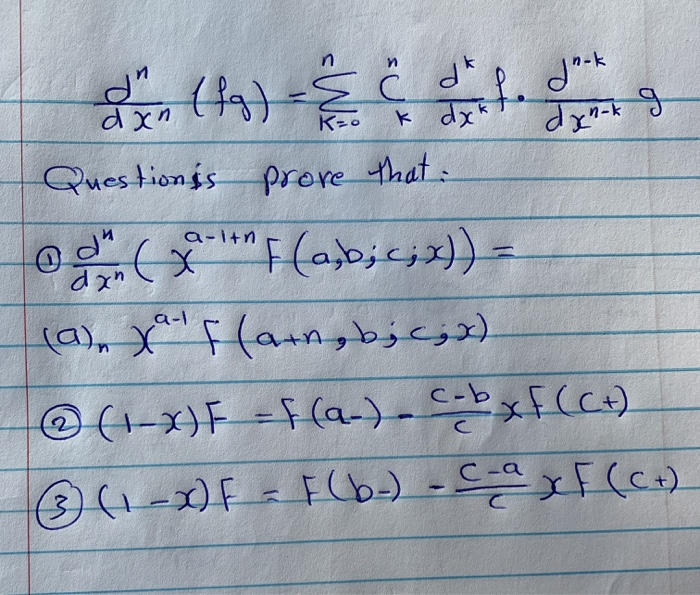 dⁿ/dxⁿ (fg) = Σₖ₌₀ⁿ Cₖⁿ dᵏ/dxᵏ f · dⁿ⁻ᵏ/dxⁿ⁻ᵏ g
Question is prove that:
① dⁿ/dxⁿ ( xᵃ⁻¹⁺ⁿ F(a,b;c;x)) =
(a)ₙ xᵃ⁻¹ F(a+n, b; c; x)
② (1-x)F = F(a-) - (c-b)/c xF(c+)
③ (1-x)F = F(b-) - (c-a)/c xF(c+)